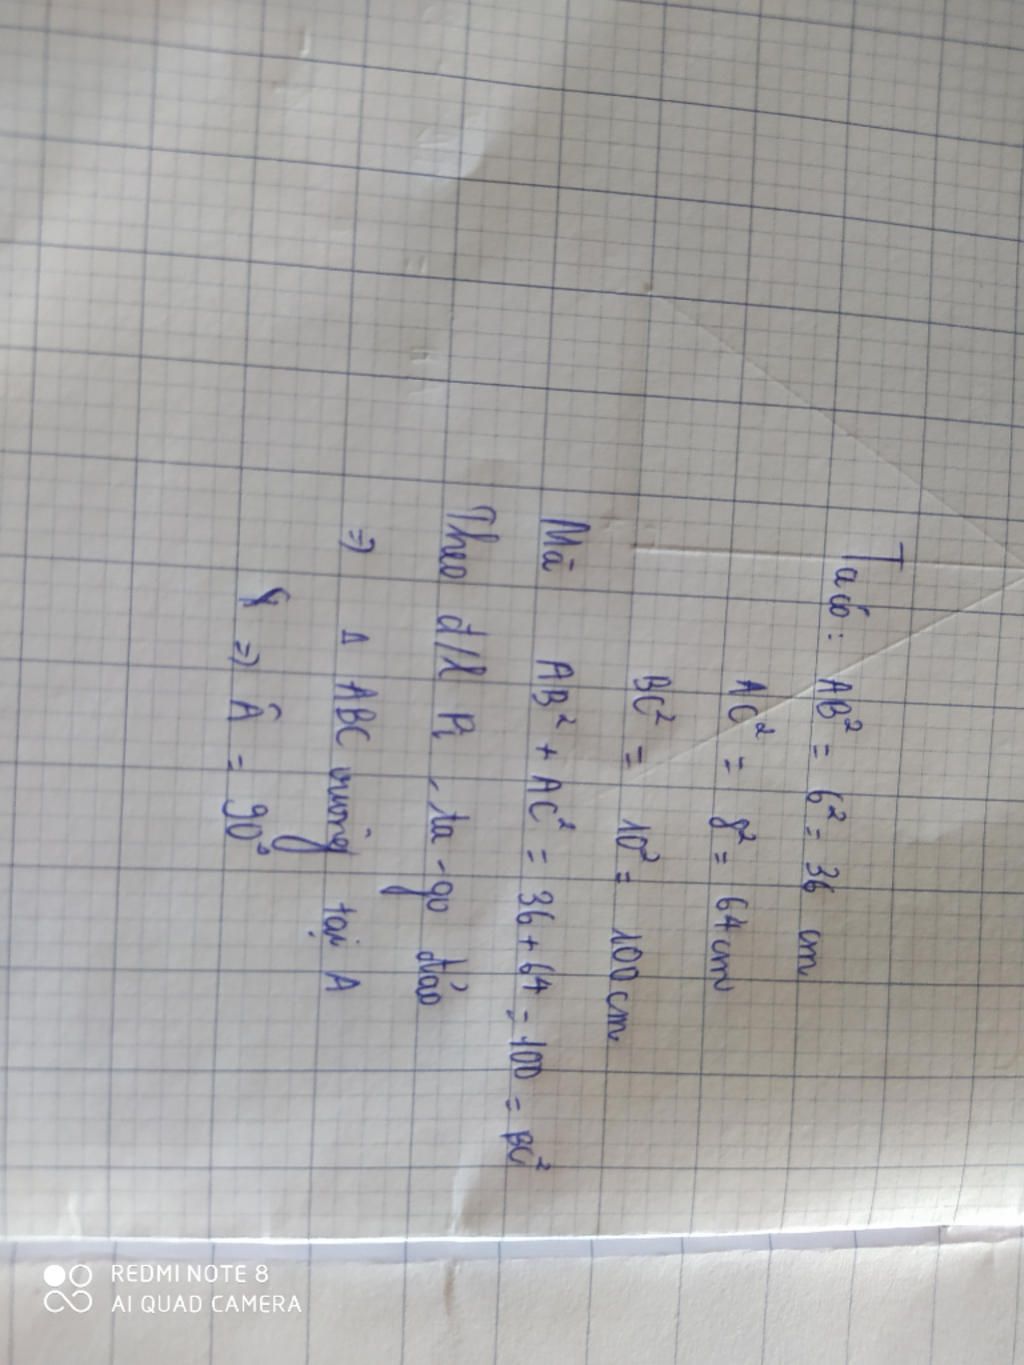 Ta có: AB² = 6² = 36 cm
AC² = 8² = 64 cm
BC² = 10² = 100 cm
Mà AB² + AC² = 36 + 64 = 100 = BC²
Theo đ/l Pi-ta-go đảo
⇒ Δ ABC vuông tại A
⇒ Â = 90°
REDMI NOTE 8
AI QUAD CAMERA